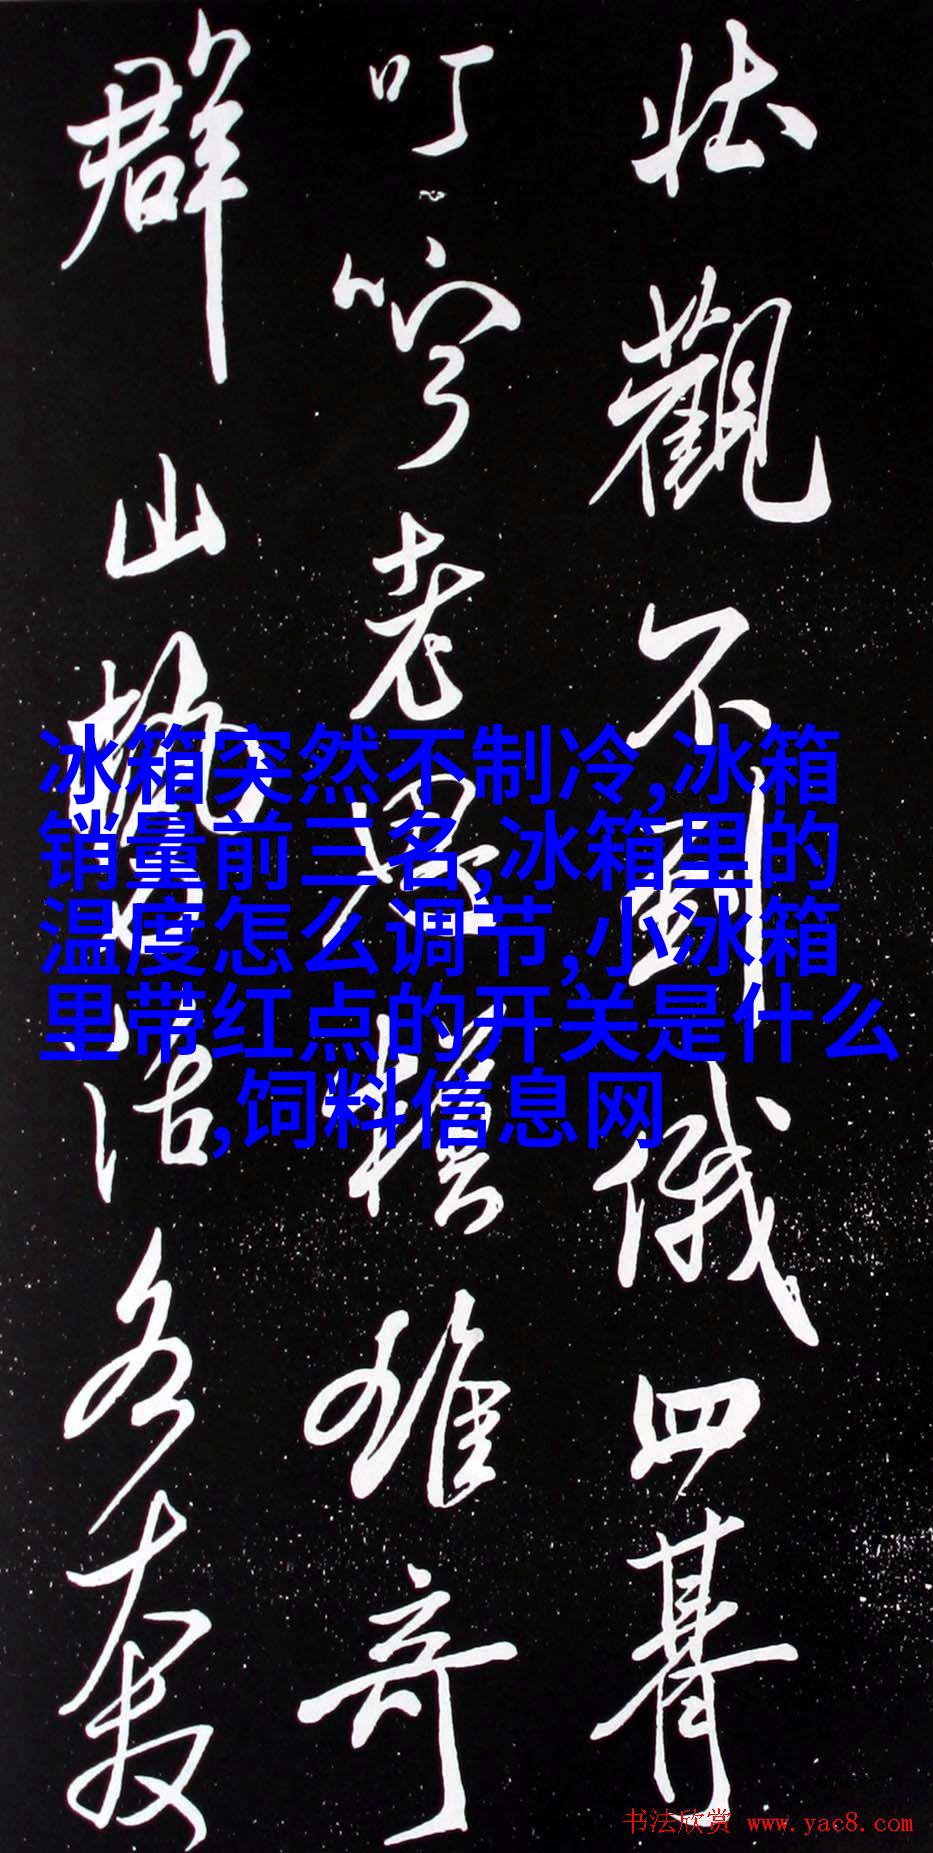 壮觀不圖俄四暮
叮嚀老眼權雄奇
群山勢活各奔
冰箱突然不制冷,冰箱
销量前三名,冰箱里的
温度怎么调节,小冰箱
里带红点的开关是什么
,饲料信息网
书法欣赏 www.yac8.com